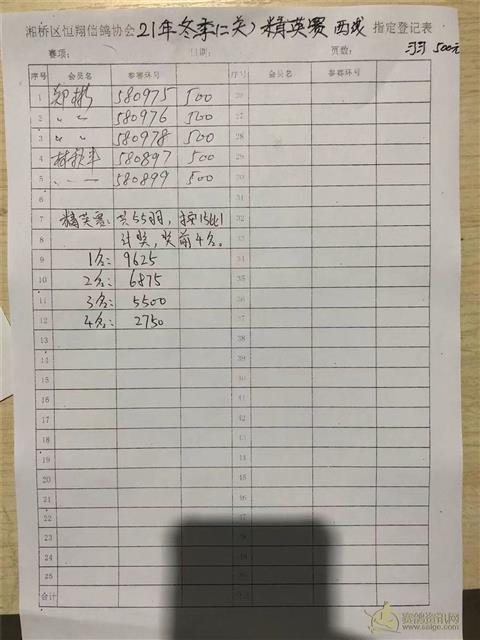 湘桥区恒翔信鸽协会21年冬季(二关)精英赛 西线 指定登记表
赛项: 日期: 页数: 羽 500元
序号 会员名 参赛环号 序号 会员名 参赛环号
1 郑彬 580975 500 26
2 〃 〃 580976 500 27
3 〃 〃 580978 500 28
4 林秋丰 580897 500 29
5 580899 500 30
6
7 精英赛: 共55羽, 按15比1 32
8 计奖, 奖前4名。
9 1名: 9625 34
10 2名: 6875 35
11 3名: 5500 36
12 4名: 2750 37
13 38
14 39
15 40
16 41
17 42
18 43
19 44
20 45
21 46
22 47
23
24
25
合计
赛鸽资讯网
www.saige.com